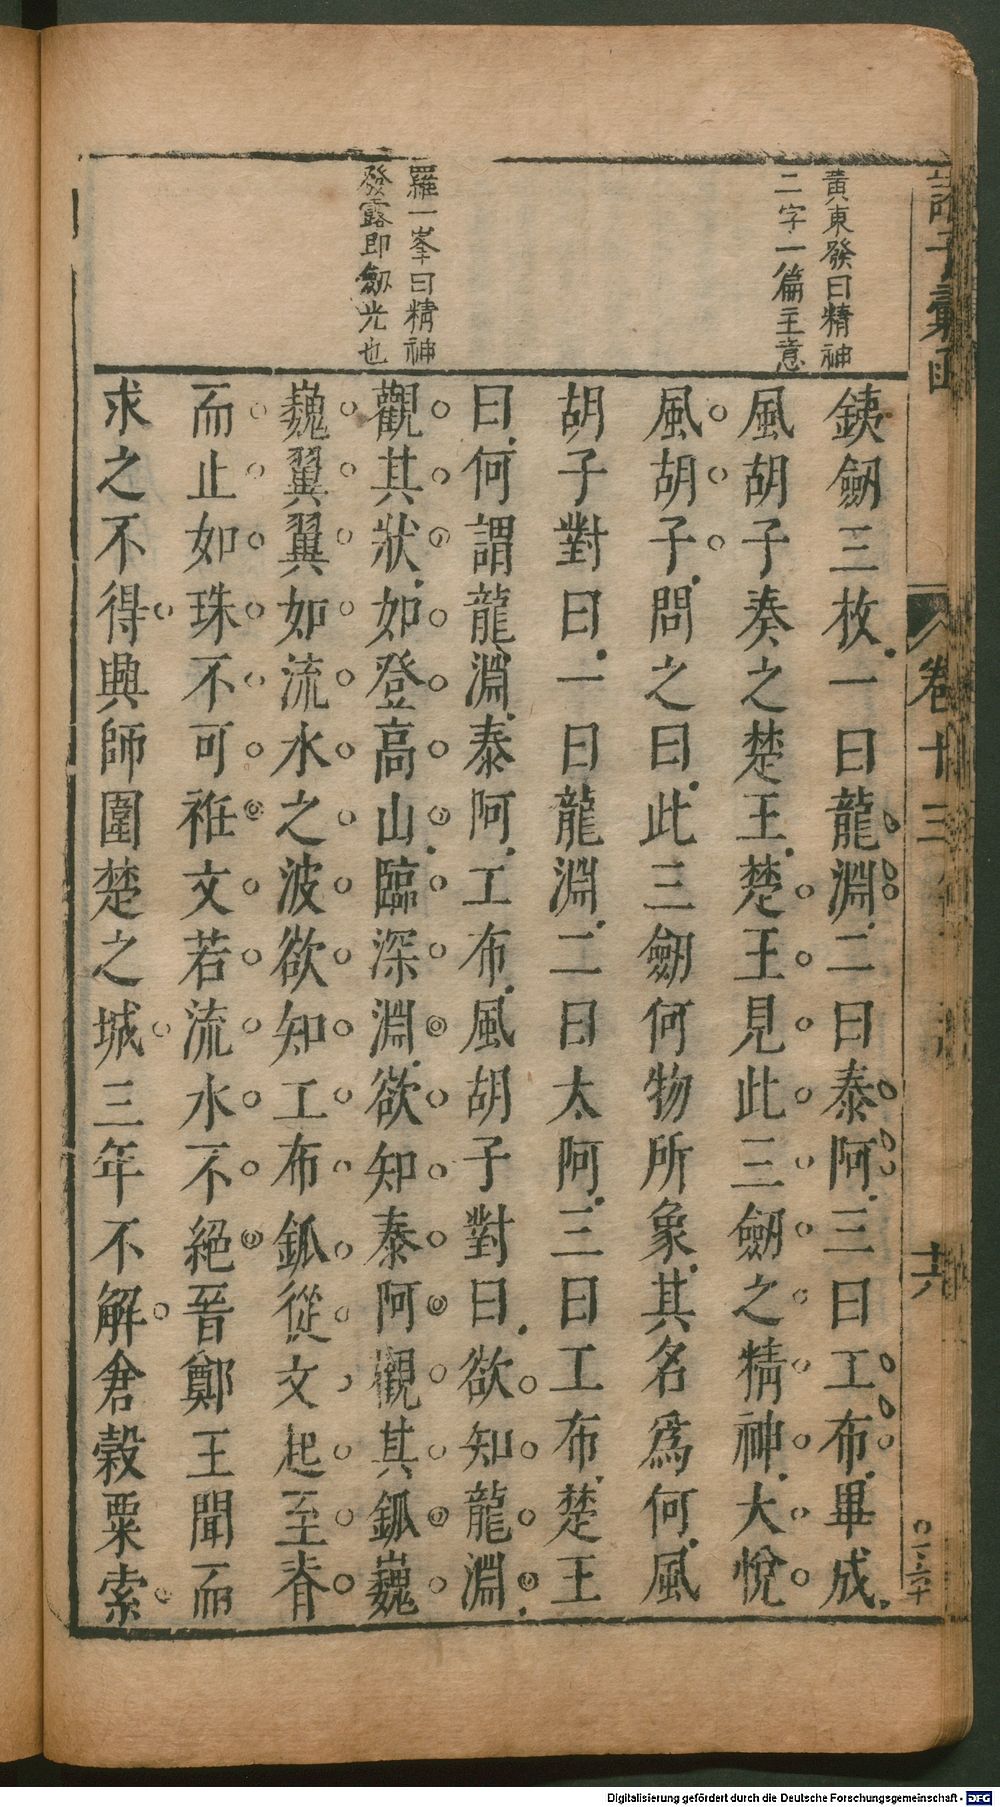 黄東發曰精神
二字一篇主意
羅一峯曰精神
發露即劔光也
鐵劔三枚一曰龍淵二曰泰阿三曰工布畢成
風胡子奏之楚王楚王見此三劔之精神大悅
風胡子問之曰此三劔何物所象其名爲何風
胡子對曰一曰龍淵二曰太阿三曰工布楚王
曰何謂龍淵泰阿工布風胡子對曰欲知龍淵
觀其狀如登高山臨深淵欲知泰阿觀其釽巍
巍翼翼如流水之波欲知工布釽從文起至脊
而止如珠不可袵文若流水不絕晉鄭王聞而
求之不得興師圍楚之城三年不解倉榖粟索
諸子彙函
卷十三
十六
Digitalisierung gefördert durch die Deutsche Forschungsgemeinschaft - DFG